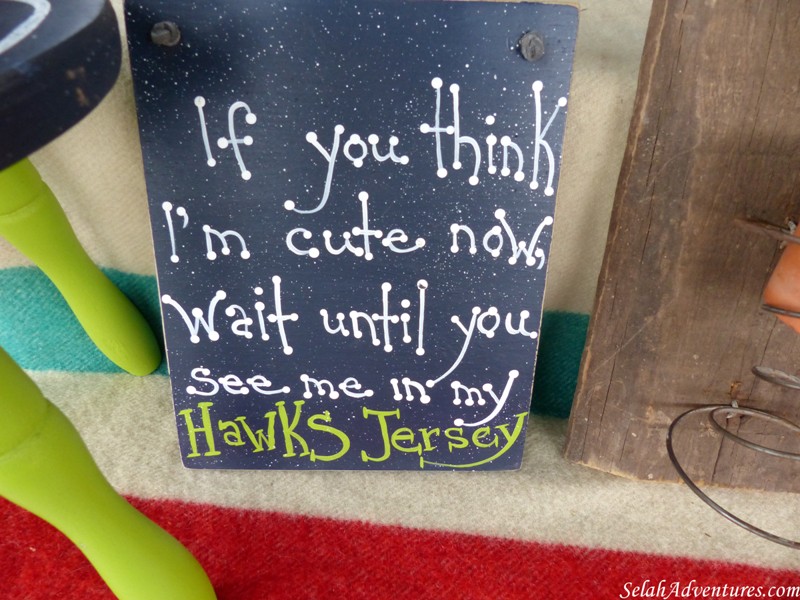 If you think
I'm cute now,
wait until you
see me in my
Hawks Jersey
SelahAdventures.com